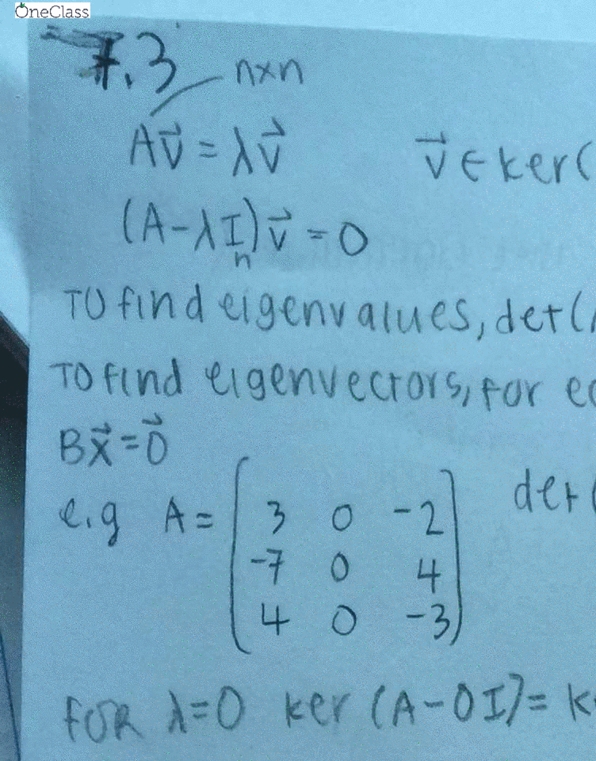 OneClass
7.3 n×n
Av⃗ = λv⃗ v⃗ ∈ ker(
(A-λIₙ)v⃗ = 0
TO find eigenvalues, det(
TO find eigenvectors, for
Bx⃗ = 0⃗
e.g A = det(
3 0 -2
-7 0 4
4 0 -3
FOR λ=0 ker (A-0I) =